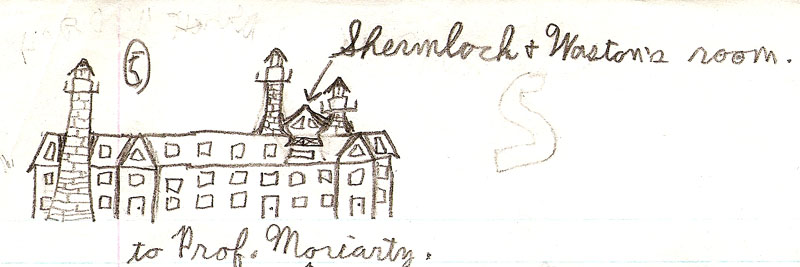 Shermlock & Waston's room.
5
S
to Prof. Moriarty.